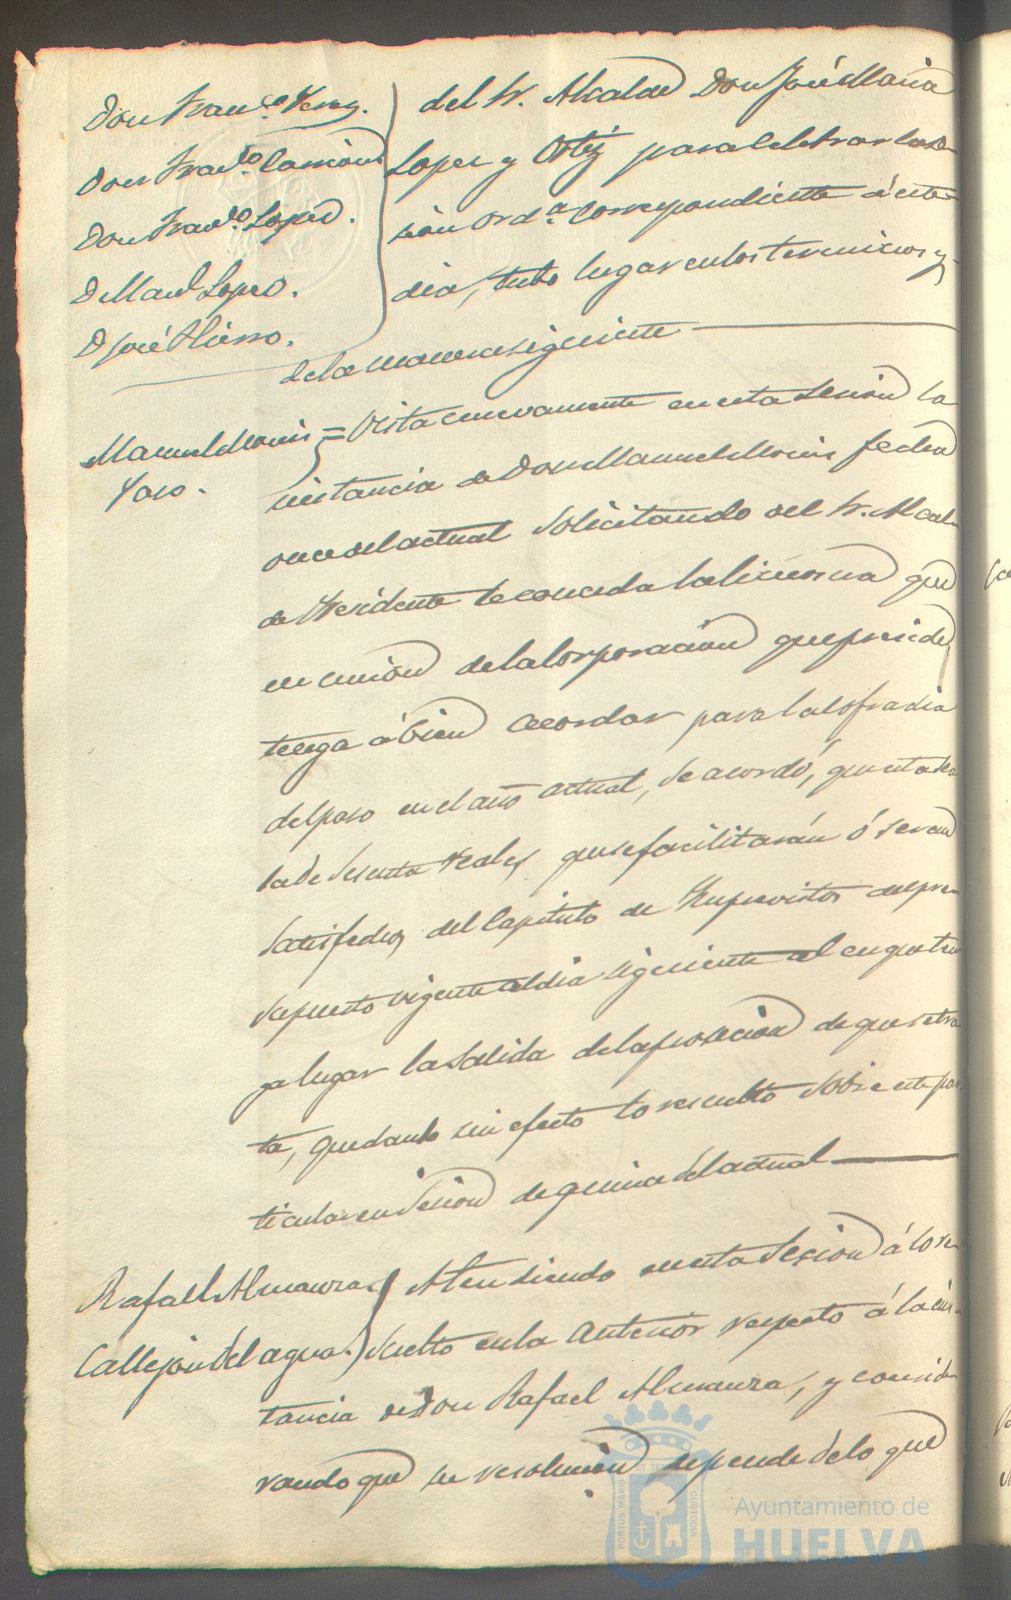 Don Franco. Perez.
Don Franco. Carrion
Don Franco. Lopez.
D Manl. Lopez.
D José Hierro.
del Sr. Alcalde Don José Maria
Lopez y Ortiz para celebrar la se-
sion ordª. correspondiente á este
dia, tubo lugar en los terminos y
de la manera siguiente
Manuel Monis
Paso.
= Vista nuevamente en esta Sesion la
instancia de Don Manuel Monis fecha
once del actual solicitando del Sr. Alcal-
de Presidente le conceda la limosna que
en union de la Corporacion que preside
tenga á bien acordar para la Cofradia
del paso en el año actual, se acordó, que esta sea
la de sesenta reales, que se facilitarán ó seran
satisfechos del Capitulo de Ymprevistos del pre-
supuesto vigente al dia siguiente al en que ten-
ga lugar la salida de la procesion de que se tra-
ta, quedando sin efecto lo resuelto sobre este par-
ticular en Sesion de quince del actual
Rafael Almanza
Callejon del agua.
Atendiendo en esta Sesion á lo re-
suelto en la anterior respecto á la ins-
tancia de Don Rafael Almanza, y conside-
rando que su resolucion depende de lo que
PORTUS MARIS ET TERRAE CUSTODIA
Ayuntamiento de
HUELVA